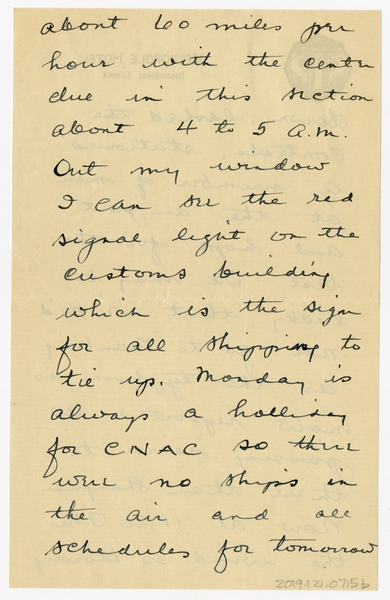 about 60 miles per
hour with the center
due in this section
about 4 to 5 A.M.
Out my window
I can see the red
signal light on the
customs building
which is the sign
for all shipping to
tie up. Monday is
always a holliday
for CNAC so there
were no ships in
the air and all
schedules for tomorrow
2019.121.0715b